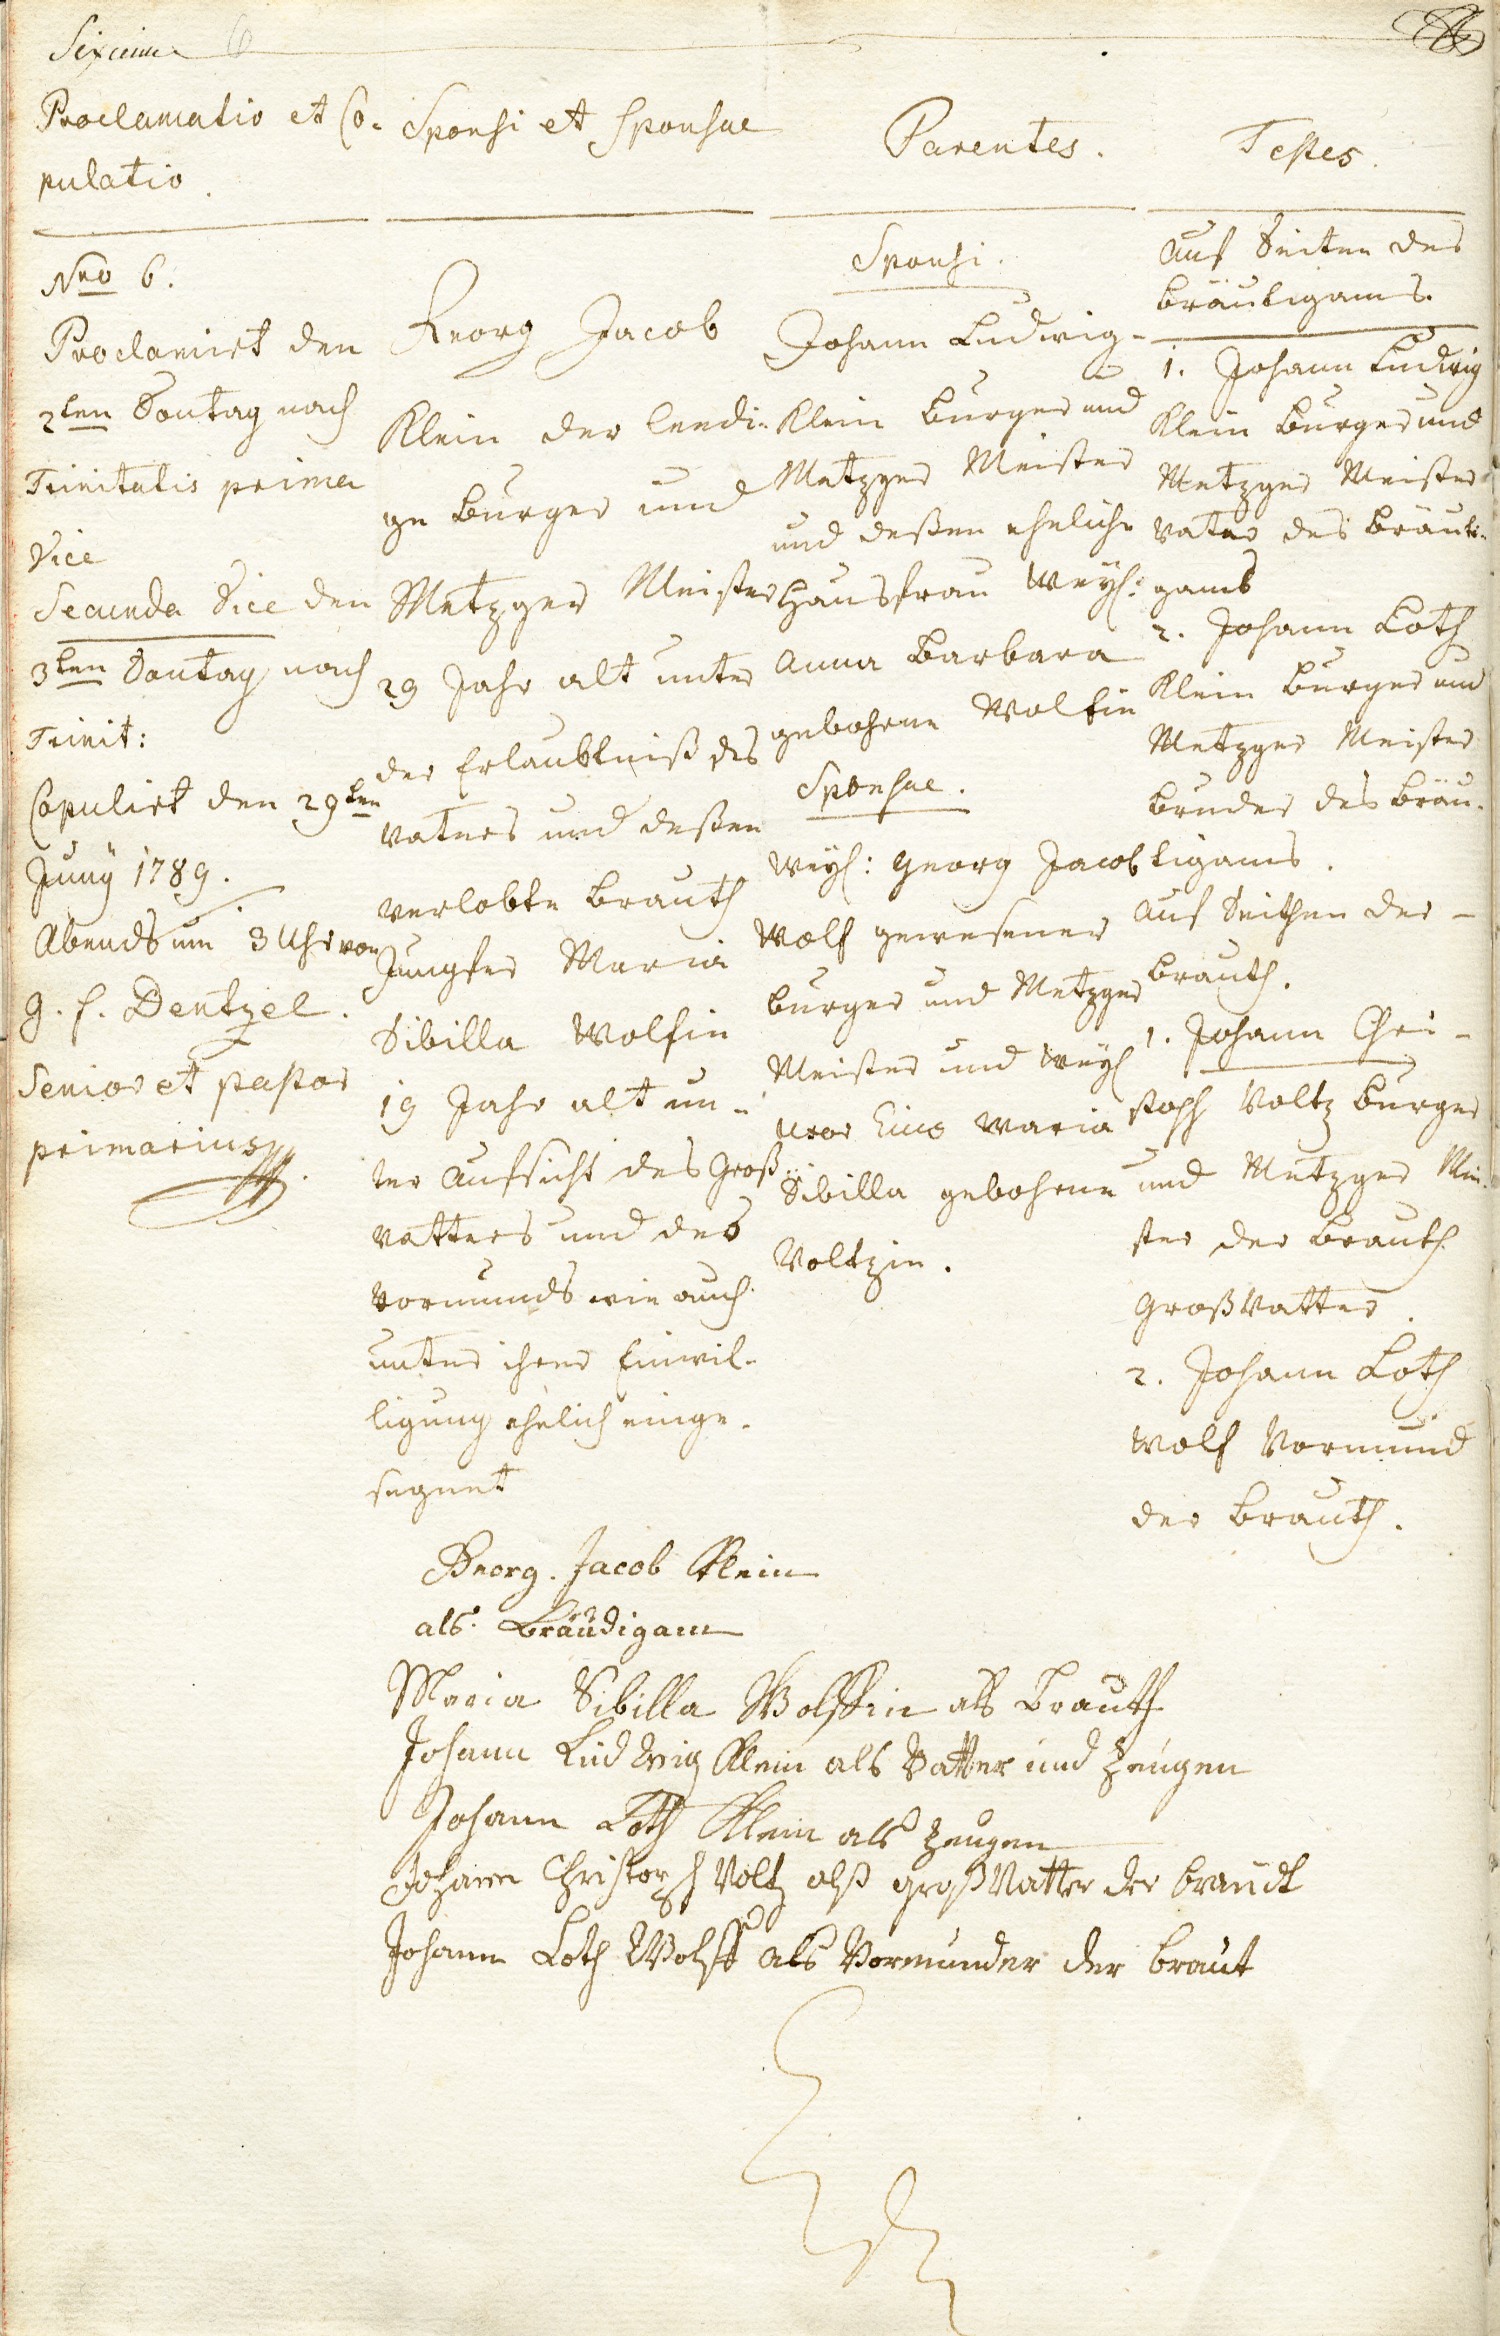 6
Proclamatio et Co-
pulatio.
Nro 6.
Proclamirt den
2ten Sontag nach
Trinitatis prima
Vice
Secunda Vice den
3ten Sontag nach
Trinit:
Copulirt den 29ten
Juny 1789.
Abends um 3 Uhr von
G. F. Dentzel.
Senior et pastor
primarius
Sponsi et Sponsae
Georg Jacob
Klein der leedi-
ge Burger und
Metzger Meister
29 Jahr alt unter
der Erlaubtniß des
Vatters und deßen
verlobte Brauth
Jungfer Maria
Sibilla Wolfin
19 Jahr alt un-
ter Aufsicht des Groß-
vatters und des
Vormunds wie auch
unter ihrer Einwil-
ligung ehelich einge-
segnet
Parentes.
Sponsi.
Johann Ludwig
Klein Burger und
Metzger Meister
und deßen eheliche
Hausfrau Weyl:
Anna Barbara
gebohrene Wolfin
Sponsae.
Weyl: Georg Jacob
Wolf gewesener
Burger und Metzger
Meister und Weyl
Uxor Eius Maria
Sibilla gebohrene
Voltzin.
Testes.
Auf Seiten des
Bräutigams.
1. Johann Ludwig
Klein Burger und
Metzger Meister
Vater des Bräuti-
gams
2. Johann Loth
Klein Burger und
Metzger Meister
Bruder des Bräu-
tigams.
Auf Seithen der
Brauth.
1. Johann Chri-
stoph Voltz Burger
und Metzger Mei-
ster der Brauth
Großvatter.
2. Johann Loth
Wolf Vormund
der Brauth.
Georg. Jacob Klein
als Bräudigam
Maria Sibilla Wolffin als Brauth
Johann Ludwig Klein als Vatter und Zeugen
Johann Loth Klein als Zeugen
Johann Christoph Voltz alß großVatter der braudt
Johann Loth Wolff als Vormunder der braut